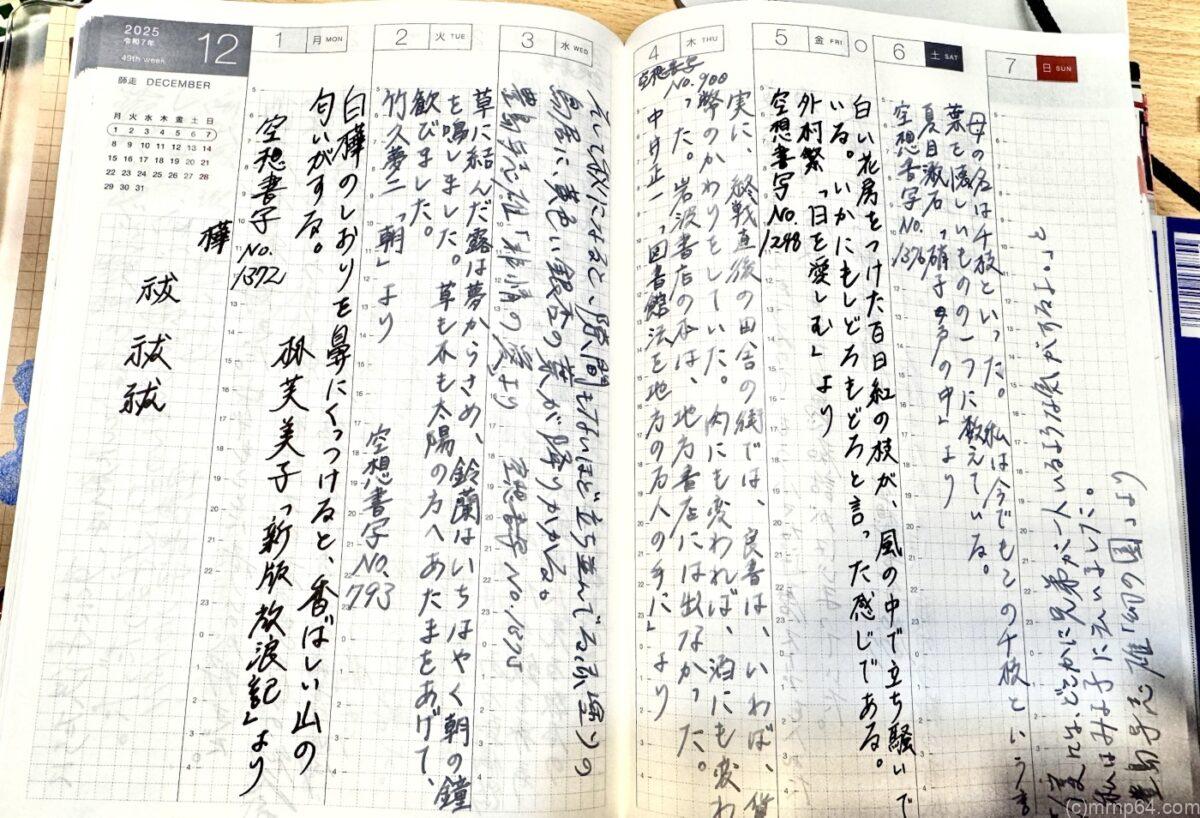 2025
令和7年
49th week
12
師走 DECEMBER
月 火 水 木 金 土 日
1 2 3 4 5 6 7
8 9 10 11 12 13 14
15 16 17 18 19 20 21
22 23 24 25 26 27 28
29 30 31
1 月 MON
白樺のしおりを鼻にくっつけると、香ばしい山の
匂いがする。
林芙美子「新版 放浪記」より
空想書写 No.1372
樺
祓
祓
祓
2 火 TUE
草に結んだ露は夢からさめ、鈴蘭はいちはやく朝の鐘
を鳴しました。草も木も太陽の方へあたまをあげて、
歓びました。
竹久夢二「朝」より
空想書写 No.793
3 水 WED
そして秋になると、隙間もないほど立ち並んでる赤塗りの
鳥居に、黄色い銀杏の葉が降りかかる。
豊島与志雄 より 空想書写 No.1375
4 木 THU
空想書写 No.900
実に、終戦直後の田舎の街では、良書は、いわば、貨
幣のかわりをしていた。肉にも変われば、酒にも変わ
った。岩波書店の本は、地方書店には出なかった。
中井正一「図書館法を地方の万人の手に」より
5 金 FRI
白い花房をつけた百日紅の枝が、風の中で立ち騒いで
いる。いかにもしどろもどろと言った感じである。
外村繁「日を愛しむ」より
空想書写 No.1248
6 土 SAT
母の名は千枝といった。私は今でもこの千枝という言
葉を懐しいものの一つに数えている。
夏目漱石「硝子戸の中」より
空想書写 No.1376
7 日 SUN
には、どこかに兄弟が一人いるような気がするよ。」と
私はみよ子に云いました。
豊島与志雄「幻の園」より
(c)mrnp64.com